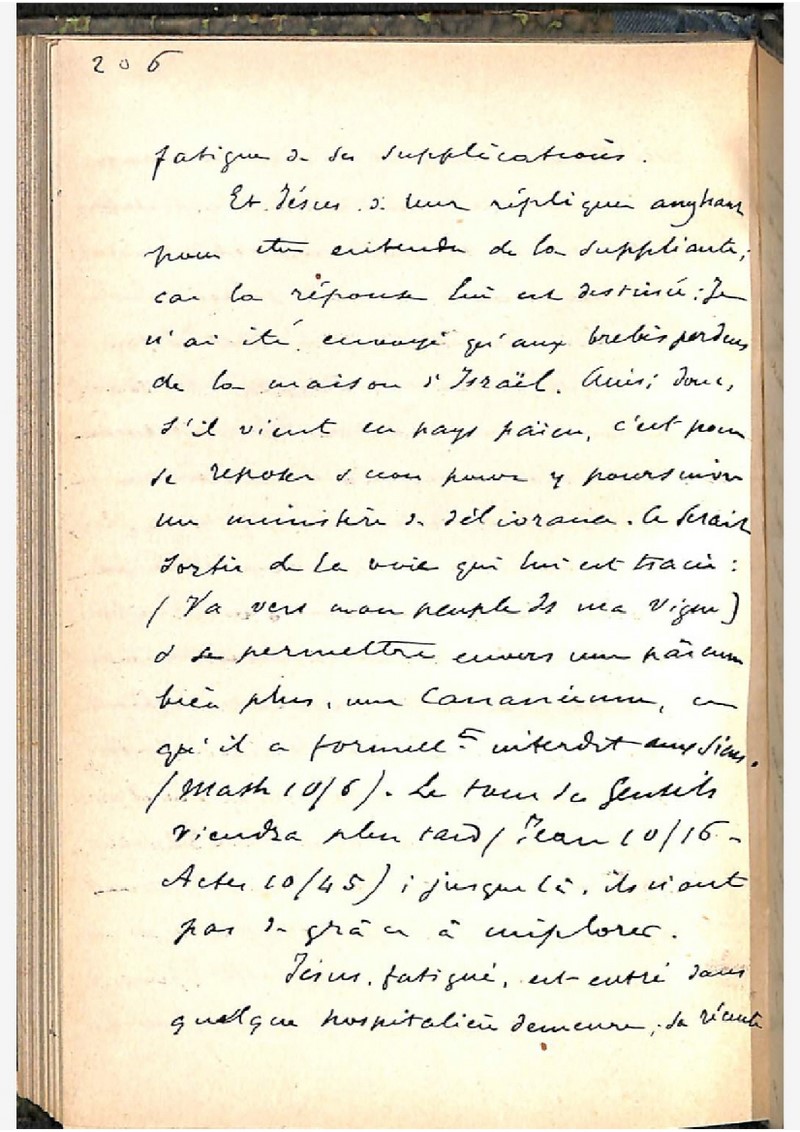 206
fatigue de ses supplications.
Et Jésus de leur répliquer assez haut
pour être entendu de la suppliante,
car la réponse lui est destinée : Je
n'ai été envoyé qu'aux brebis perdues
de la maison d'Israël. Ainsi donc,
s'il vient en pays païen, c'est pour
se reposer & non pour y poursuivre
un ministère de délivrance. Ce serait
sortir de la voie qui lui est tracée :
(Va vers mon peuple ds ma vigne)
& se permettre envers une païenne
bien plus, une Cananéenne, ce
qu'il a formellet interdit aux siens.
(Math 10/6). Le tour des Gentils
viendra plus tard (Jean 10/16 -
Actes 10/45) ; jusque là, ils n'ont
pas de grâce à implorer.
Jésus, fatigué, est entré dans
quelque hospitalière demeure ; sa récente